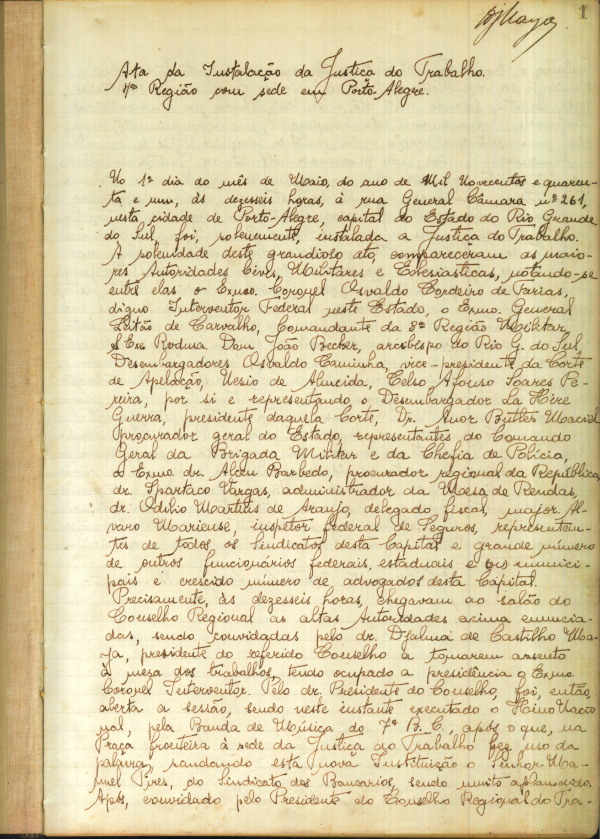 1
Ata da Instalação da Justiça do Trabalho.
4ª Região com sede em Porto-Alegre.
No 1º dia do mês de Maio, do ano de Mil Novecentos e quaren-
ta e um, às dezesseis horas, à rua General Câmara nº 261,
nesta cidade de Porto-Alegre, capital do Estado do Rio Grande
do Sul, foi, solenemente, instalada a Justiça do Trabalho.
A solenidade deste grandioso ato, compareceram as maio-
res Autoridades Civis, Militares e Eclesiasticas, notando-se
entre elas o Exmo. Coronel Osvaldo Cordeiro de Farias,
digno Interventor Federal neste Estado, o Exmo. General
Leitão de Carvalho, Comandante da 3ª Região Militar,
S. Exa. Rvdma. Dom João Becker, arcebispo do Rio G. do Sul,
Desembargadores Osvaldo Caminha, vice-presidente da Corte
de Apelação, Nesio de Almeida, Celso Afonso Soares Pe-
reira, por si e representando o Desembargador La Hire
Guerra, presidente daquela Corte, Dr. Anor Butler Maciel
procurador geral do Estado, representantes do Comando
Geral da Brigada Militar e da Chefia de Polícia,
o Exmo. dr. Alceu Barbedo, procurador regional da República,
dr. Spartaco Vargas, administrador da Mesa de Rendas,
dr. Odilio Martins de Araujo, delegado fiscal, major Al-
varo Mariense, inspetor federal de Seguros, representan-
tes de todos os Sindicatos desta Capital e grande número
de outros funcionários federais, estaduais e munici-
pais e crescido número de advogados desta Capital.
Precisamente, às dezesseis horas, chegavam ao salão do
Conselho Regional as altas Autoridades acima enuncia-
das, sendo convidadas pelo dr. Djalma de Castilho Ma-
ya, presidente do referido Conselho a tomarem assento
à mesa dos trabalhos, tendo ocupado a presidência o Exmo.
Coronel Interventor. Pelo dr. Presidente do Conselho, foi, então,
aberta a sessão, sendo neste instante executado o Hino Nacio
nal, pela Banda de Música do 7º B. C., após o que, na
Praça fronteira à sede da Justiça do Trabalho fez uso da
palavra, saudando esta nova Instituição o Senhor Ma-
nuel Pires, do Sindicato dos Bancarios, sendo muito aplaudido.
Após, convidado pelo Presidente do Conselho Regional do Tra-